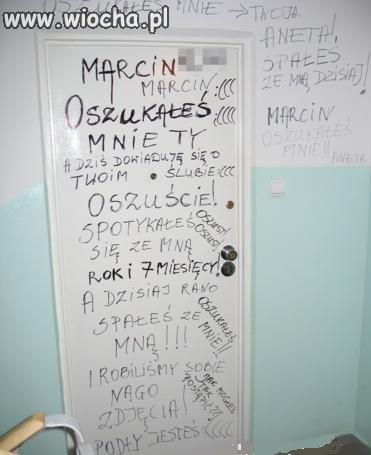 www.wiocha.pl
OSZUKAŁEŚ MNIE → TWOJA
ANETA!
SPAŁEŚ
ZE MNĄ DZISIAJ!
MARCIN
OSZUKAŁEŚ
MNIE!!
ANETA
MARCIN
MARCIN :(((
OSZUKAŁEŚ :((((
MNIE TY
A DZIŚ DOWIADUJĘ SIĘ O
TWOIM ŚLUBIE :(((
OSZUŚCIE!
SPOTYKAŁEŚ
OSZUST!
OSZUST!
SIĘ ZE MNĄ
ROK I 7 MIESIĘCY!
A DZISIAJ RANO
SPAŁEŚ ZE
MNĄ!!!
OSZUKAŁEŚ
MNIE!!!
I ROBILIŚMY SOBIE
NAGO
ZDJĘCIA!
JAK MOGŁEŚ
POSTĄPIĆ?!
PODŁY JESTEŚ :((((